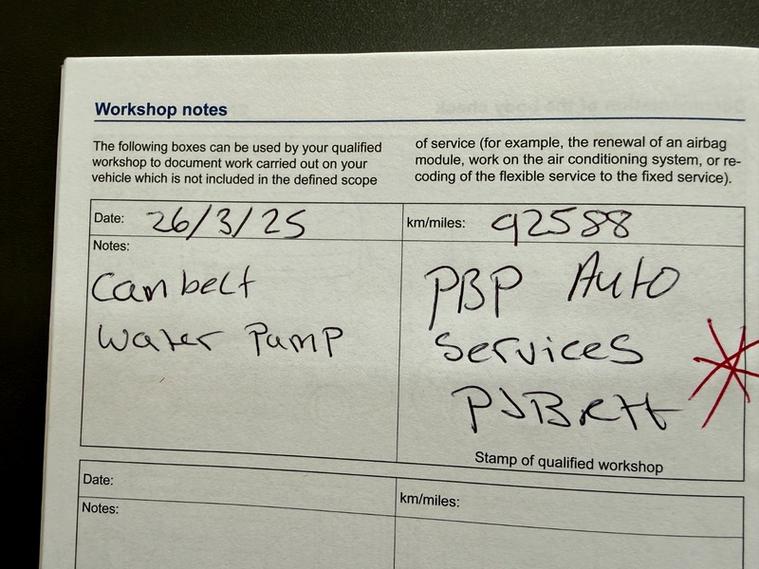 Workshop notes
The following boxes can be used by your qualified
workshop to document work carried out on your
vehicle which is not included in the defined scope
of service (for example, the renewal of an airbag
module, work on the air conditioning system, or re-
coding of the flexible service to the fixed service).
Date: 26/3/25
km/miles: 92588
Notes:
Cambelt
Water Pump
PBP Auto
Services
PJBrett
Stamp of qualified workshop
Date:
km/miles:
Notes: